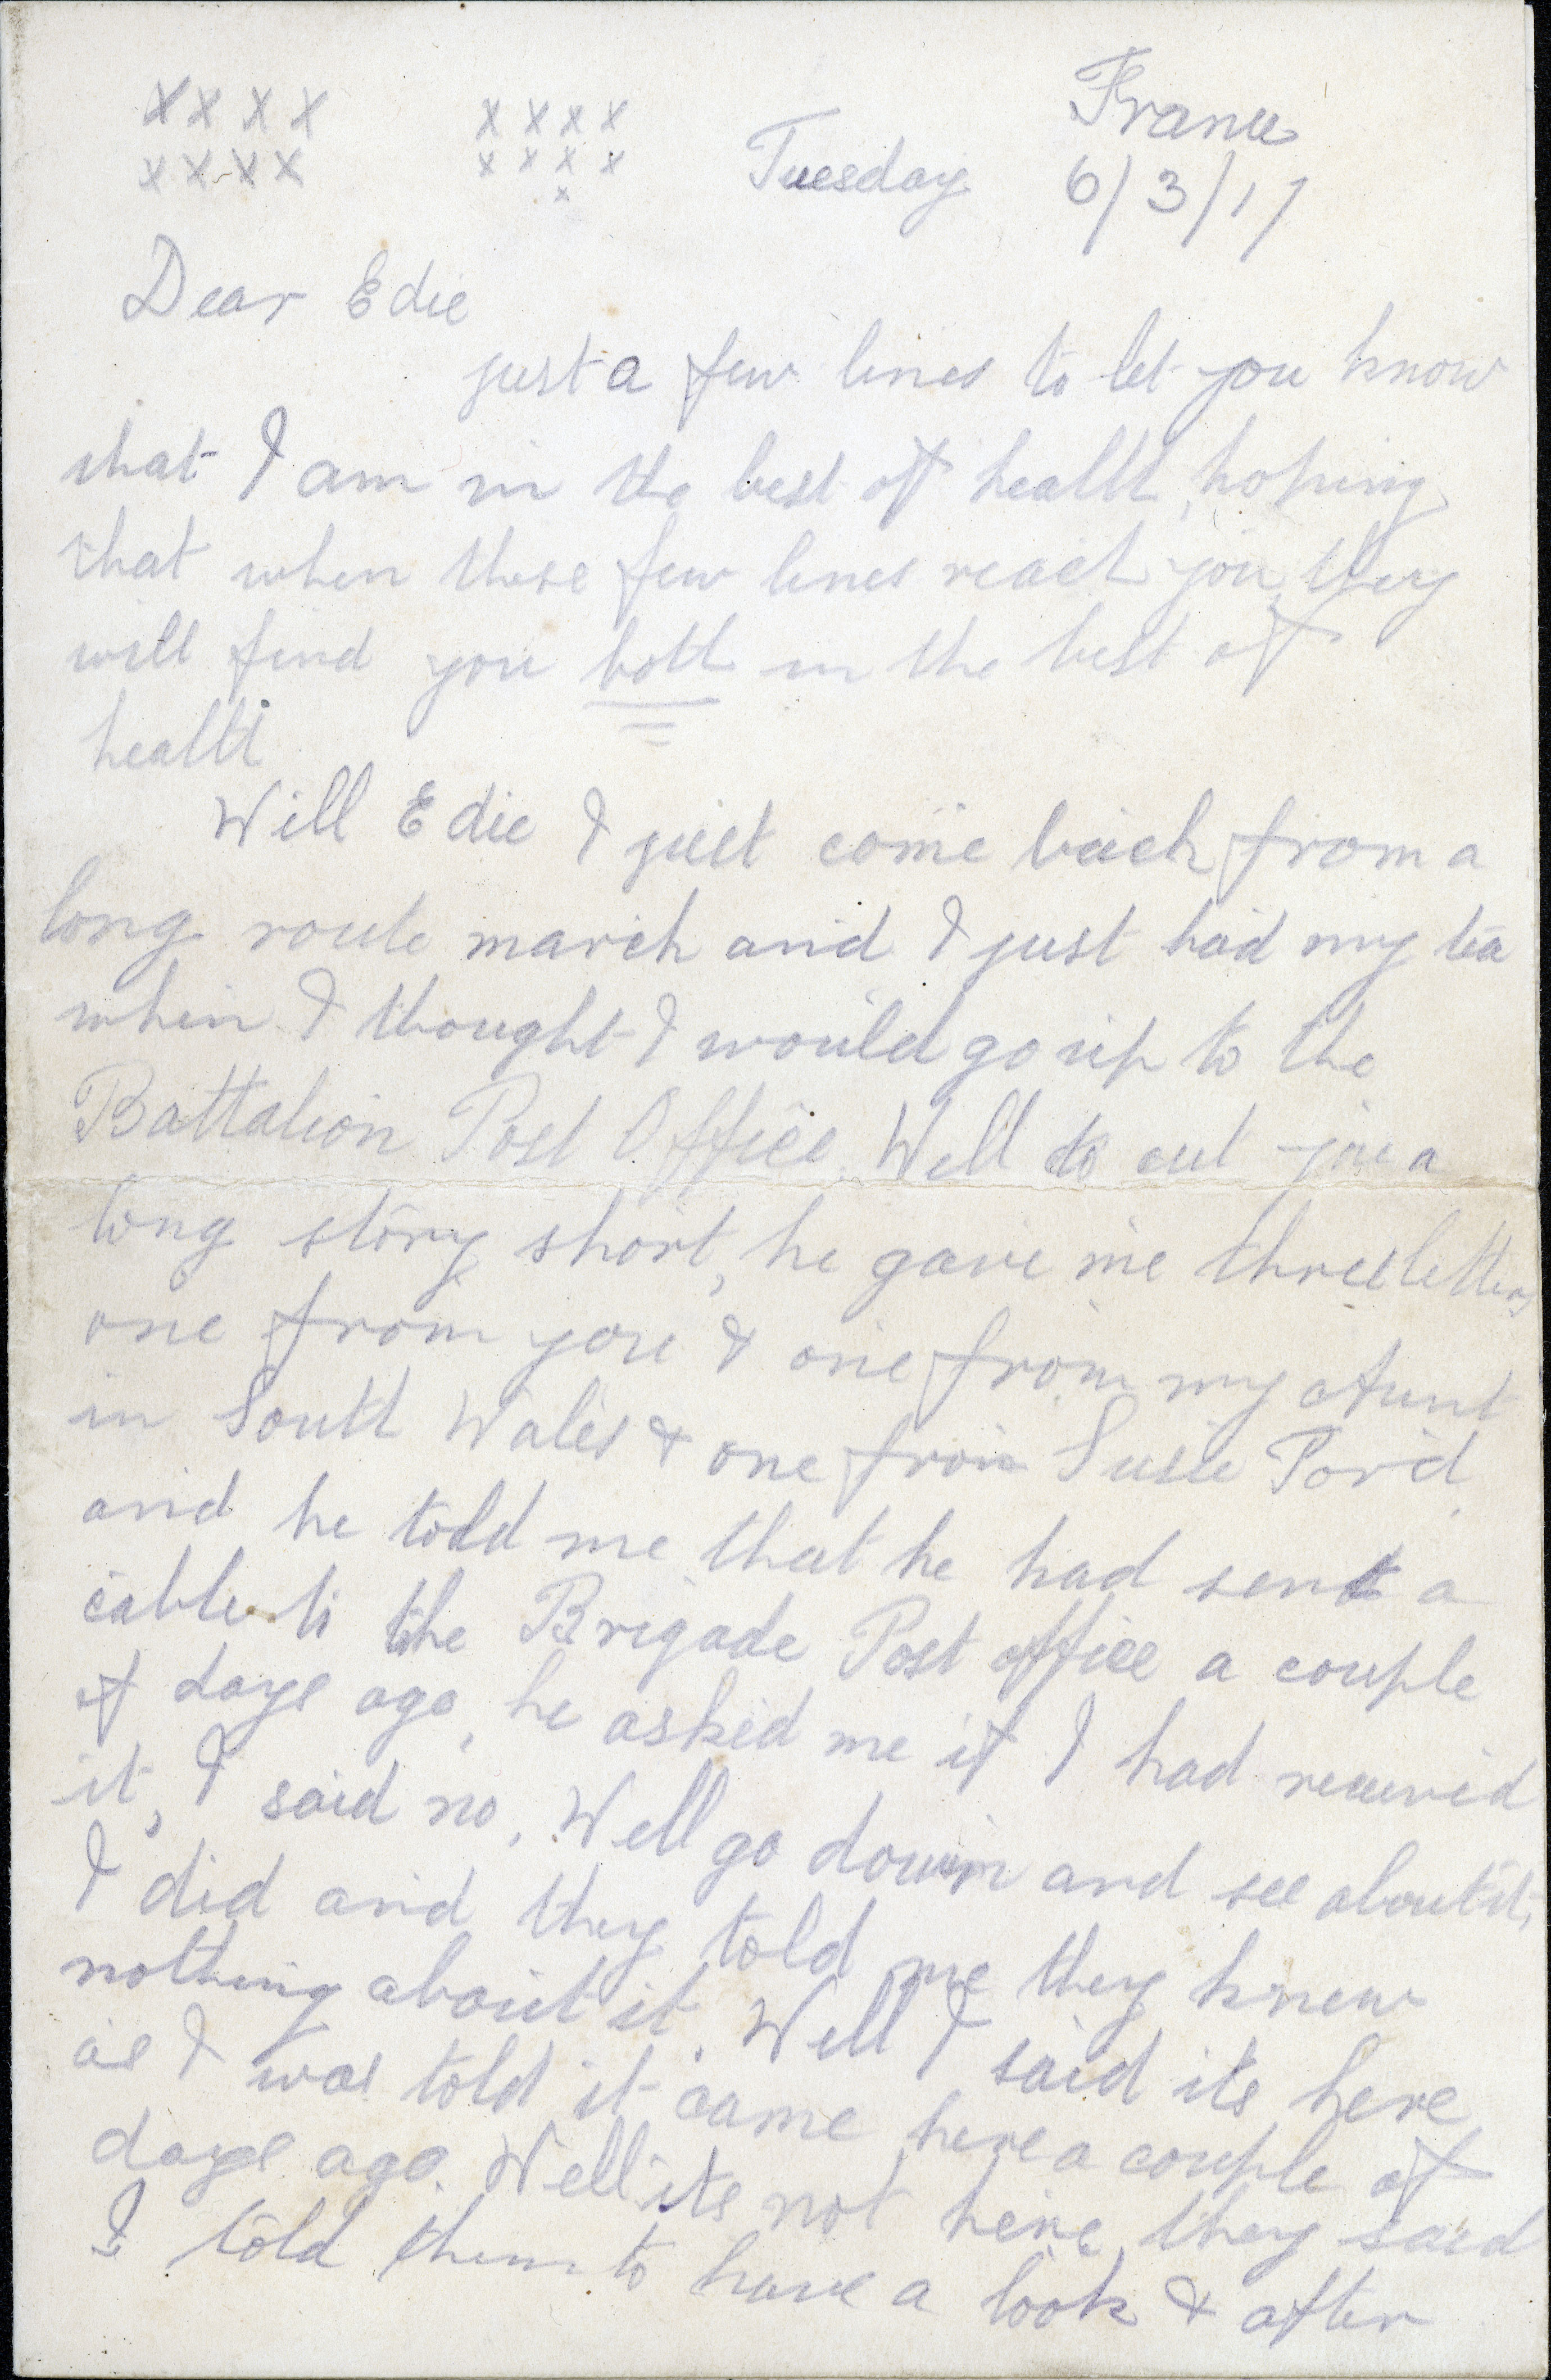 x x x x x x x x France
x x x x x x x x Tuesday 6/3/17
x
Dear Edie
just a few lines to let you know
that I am in the best of health, hoping
that when these few lines reach you they
will find you both in the best of
health
Well Edie I just come back from a
long route march and I just had my tea
when I thought I would go up to the
Battalion Post Office. Well to cut you a
long story short, he gave me three letters
one from you & one from my Aunt
in South Wales & one from Susie
and he told me that he had sent a
cable to the Brigade Post office a couple
of days ago, he asked me if I had received
it, I said no. Well go down and see about it,
I did and they told me they knew
nothing about it. Well I said its here
as I was told it came here a couple of
days ago. Well its not here they said
I told them to have a look & after